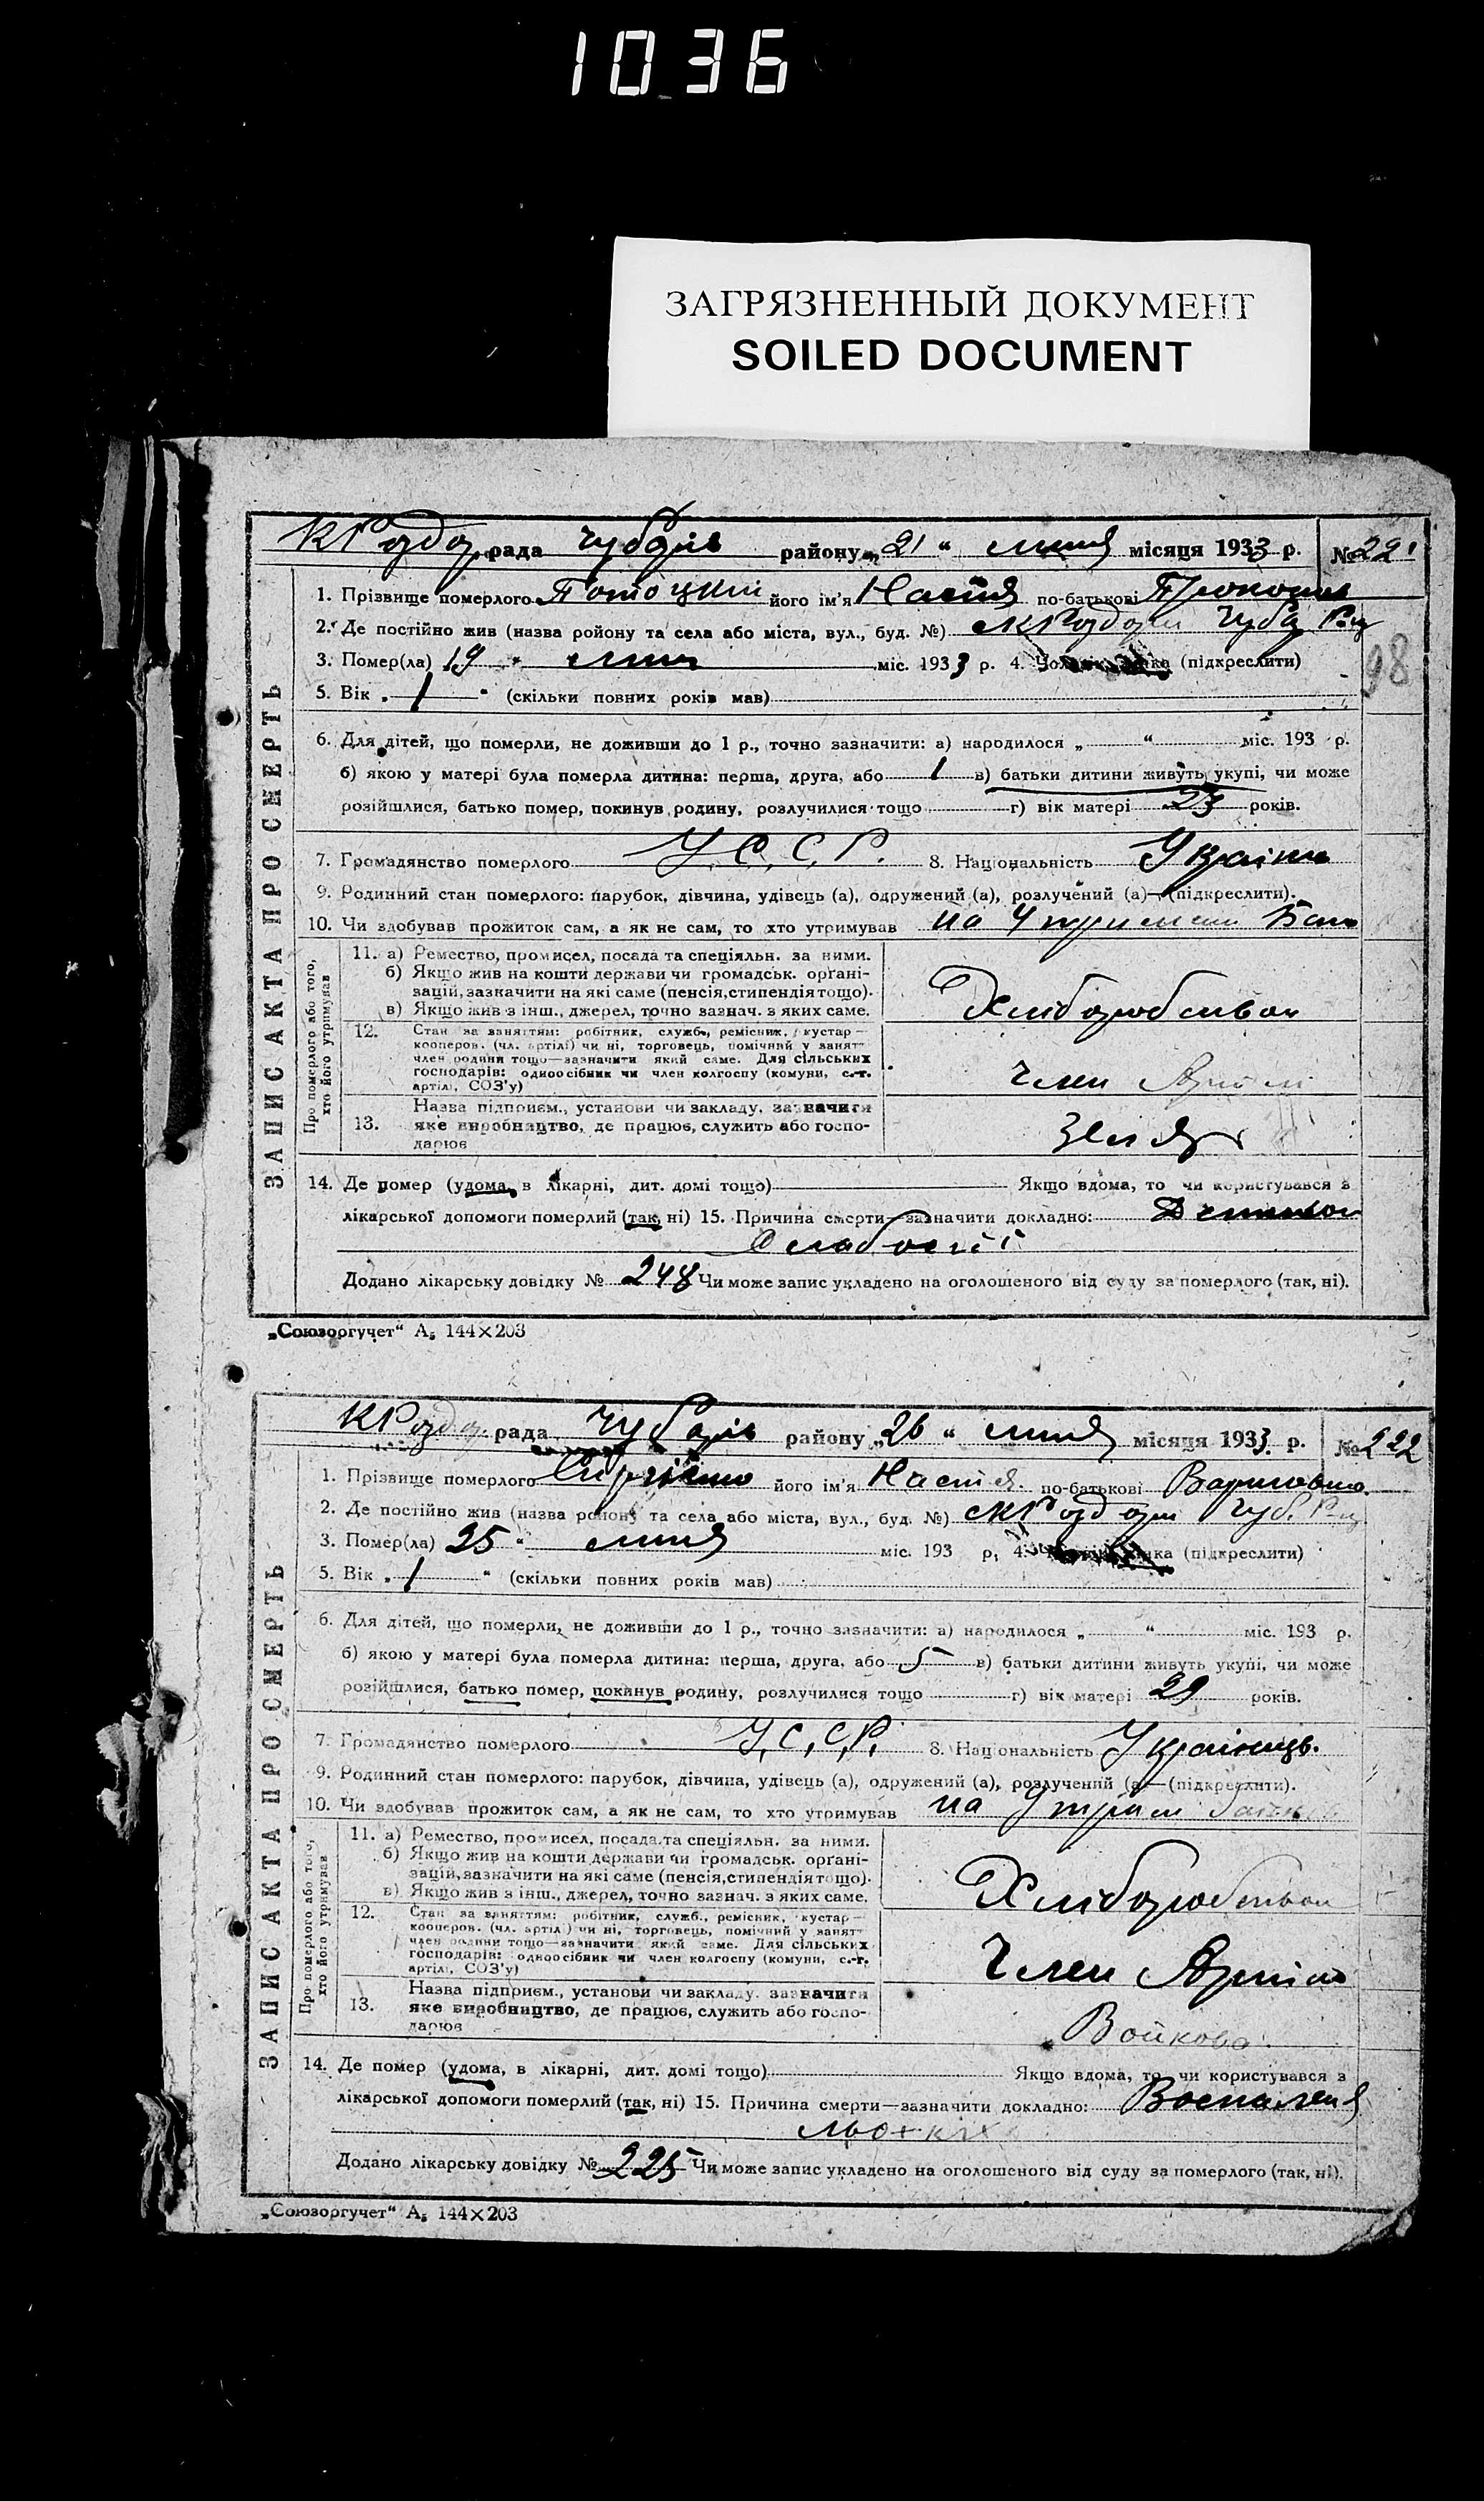 1036
ЗАГРЯЗНЕННЫЙ ДОКУМЕНТ
SOILED DOCUMENT
98
ЗАПИС АКТА ПРО СМЕРТЬ
рада Чубарів району „21“ липня місяця 1933 р. № 221
1. Прізвище померлого Потоцкий його ім'я Настя по-батькові
2. Де постійно жив (назва ройону та села або міста, вул., буд. №)
3. Помер(ла) 19 міс. 1933 р. 4. (підкреслити)
5. Вік „ 1 “ (скільки повних років мав)
6. Для дітей, що померли, не доживши до 1 р., точно зазначити: а) народилося „ “ міс. 193 р.
б) якою у матері була померла дитина: перша, друга, або 1 в) батьки дитини живуть укупі, чи може
розійшлися, батько помер, покинув родину, розлучилися тощо г) вік матері 23 років.
7. Громадянство померлого У.С.С.Р. 8. Національність
9. Родинний стан померлого: парубок, дівчина, удівець (а), одружений (а), розлучений (а)—(підкреслити).
10. Чи здобував прожиток сам, а як не сам, то хто утримував на
Про померлого або того, хто його утримував
11. а) Ремество, промисел, посада та спеціяльн. за ними.
б) Якщо жив на кошти держави чи громадськ. органі-
зацій, зазначити на які саме (пенсія, стипендія тощо).
в) Якщо жив з інш., джерел, точно зазнач. з яких саме.
Хліборобством
12. Стан за заняттям: робітник, служб., ремісник, кустар—
кооперов. (чл. артілі) чи ні, торговець, помічний у занят-
член родини тощо—зазначити який саме. Для сільських
господарів: одноосібник чи член колгоспу (комуни, с.-г.
артілі, СОЗ'у)
Член Артілі
13. Назва підприєм., установи чи закладу, зазначити
яке виробництво, де працює, служить або госпо-
дарює
14. Де помер (удома, в лікарні, дит. домі тощо) Якщо вдома, то чи користувався з
лікарської допомоги померлий (так, ні) 15. Причина смерти—зазначити докладно:
слабості
Додано лікарську довідку № 248 Чи може запис укладено на оголошеного від суду за померлого (так, ні).
„Союзоргучет“ А₅ 144×203
ЗАПИС АКТА ПРО СМЕРТЬ
рада Чубарів району „26“ липня місяця 1933 р. № 222
1. Прізвище померлого його ім'я Настя по-батькові
2. Де постійно жив (назва ройону та села або міста, вул., буд. №)
3. Помер(ла) 25 „ липня міс. 193 р. 4. (підкреслити)
5. Вік „ 1 “ (скільки повних років мав)
6. Для дітей, що померли, не доживши до 1 р., точно зазначити: а) народилося „ “ міс. 193 р.
б) якою у матері була померла дитина: перша, друга, або 5 в) батьки дитини живуть укупі, чи може
розійшлися, батько помер, покинув родину, розлучилися тощо г) вік матері 29 років.
7. Громадянство померлого У.С.С.Р. 8. Національність Українець.
9. Родинний стан померлого: парубок, дівчина, удівець (а), одружений (а), розлучений (а)—(підкреслити).
10. Чи здобував прожиток сам, а як не сам, то хто утримував на
Про померлого або того, хто його утримував
11. а) Ремество, промисел, посада та спеціяльн. за ними.
б) Якщо жив на кошти держави чи громадськ. органі-
зацій, зазначити на які саме (пенсія, стипендія тощо).
в) Якщо жив з інш., джерел, точно зазнач. з яких саме.
Хліборобством
12. Стан за заняттям: робітник, служб., ремісник, кустар—
кооперов. (чл. артілі) чи ні, торговець, помічний у занят-
член родини тощо—зазначити який саме. Для сільських
господарів: одноосібник чи член колгоспу (комуни, с.-г.
артілі, СОЗ'у)
Член Артілі
13. Назва підприєм., установи чи закладу, зазначити
яке виробництво, де працює, служить або госпо-
дарює
Войкова
14. Де помер (удома, в лікарні, дит. домі тощо) Якщо вдома, то чи користувався з
лікарської допомоги померлий (так, ні) 15. Причина смерти—зазначити докладно: Воспаленя
льохких
Додано лікарську довідку № 225 Чи може запис укладено на оголошеного від суду за померлого (так, ні).
„Союзоргучет“ А₅ 144×203